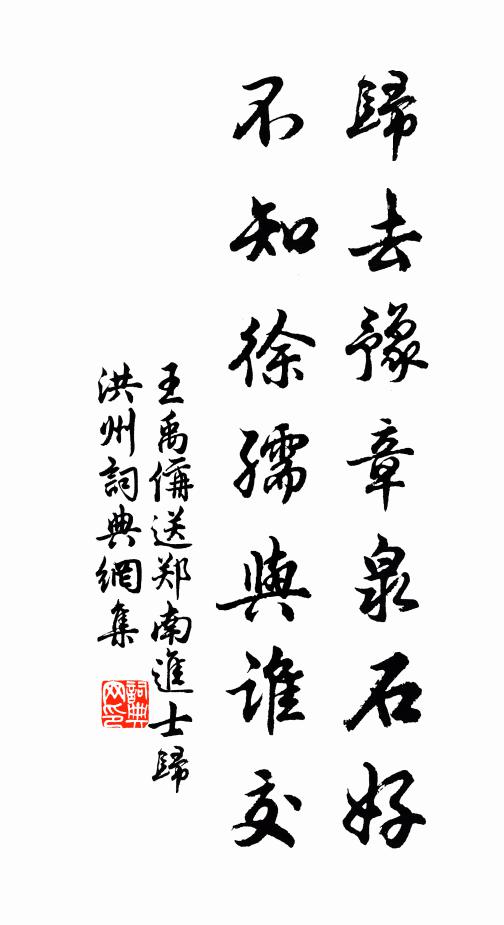 歸去豫章泉石好
不知徐孺與誰交
王禹偁送郑南進士歸
洪州詞典網集
詞典
网印